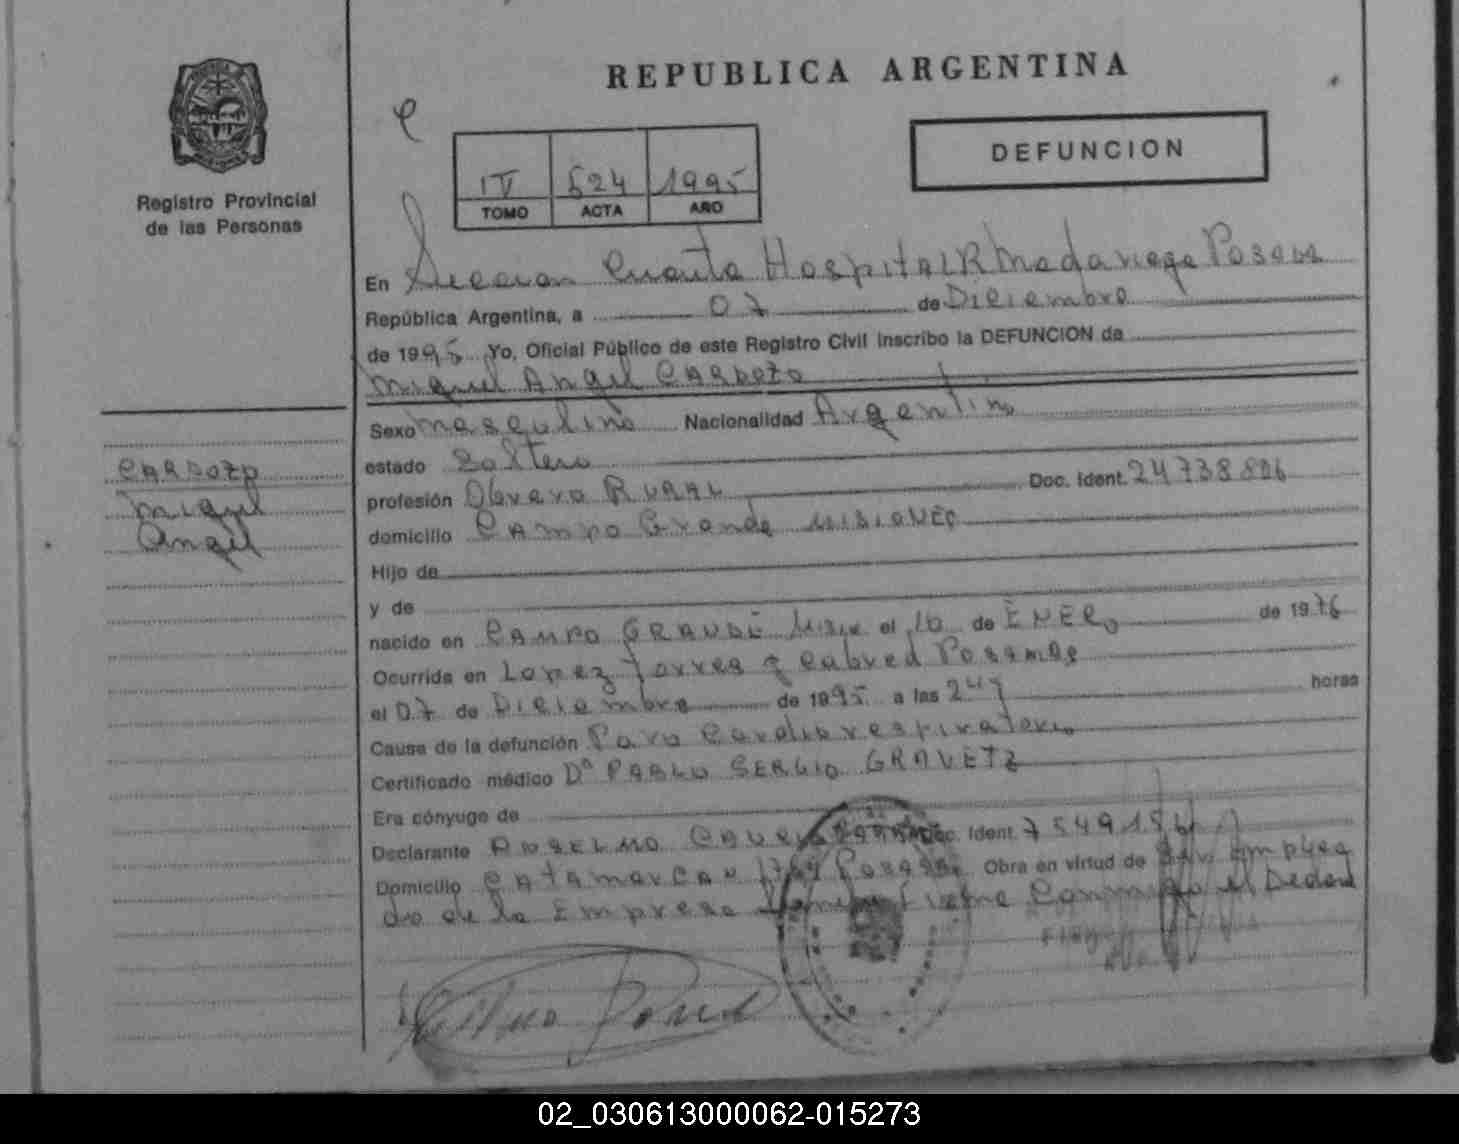 REPUBLICA ARGENTINA
DEFUNCION
Registro Provincial
de las Personas
IV 524 1995
TOMO ACTA AÑO
En Seccion Cuarta Hospital R Madariaga Posadas
República Argentina, a 07 de Diciembre
de 1995 Yo, Oficial Público de este Registro Civil inscribo la DEFUNCION de
Miguel Angel CARDOZO
Sexo Masculino Nacionalidad Argentino
CARDOZO
Miguel
Angel
estado Soltero
profesión Obrero RURAL Doc. Ident. 24738806
domicilio CAMPO Grande MISIONES
Hijo de
y de
nacido en CAMPO GRANDE Mis el 16 de ENERO de 1976
Ocurrida en Lopez Torres y Cabred Posadas
el 07 de Diciembre de 1995 a las horas
Causa de la defunción Paro Cardiorespiratorio
Certificado médico Dº PABLO SERGIO GRAVETZ
Era cónyuge de
Declarante ANSELMO Doc. Ident. 7549156
Domicilio CATAMARCA Posadas Obra en virtud de Ser Emplea
do de la Empresa Firma Conmigo el Declara
02_030613000062-015273